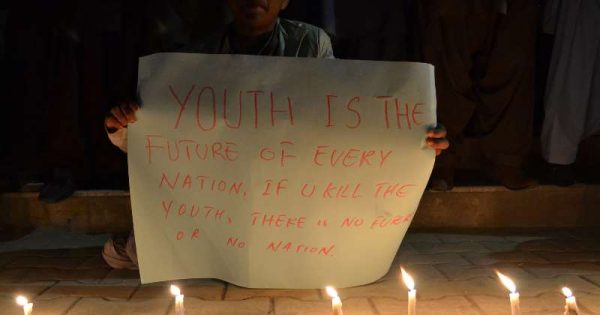 YOUTH IS THE
FUTURE OF EVERY
NATION. IF U KILL THE
YOUTH, THERE IS NO
OR NO NATION.